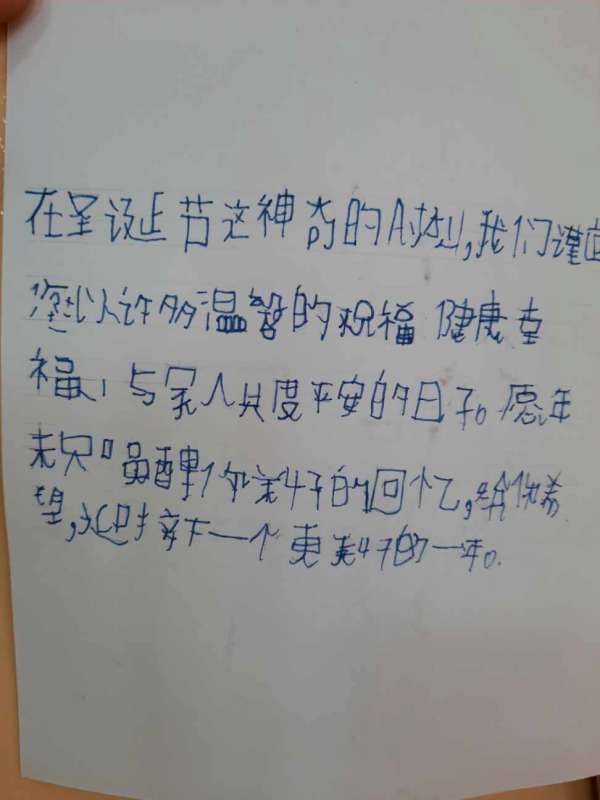 在圣诞节这神奇的时刻,我们谨向
您以许多温馨的祝福 健康幸
福、与家人共度平安的日子。愿年
末只唤醒你美好的回忆,给你希
望,迎接下一个更美好的一年。